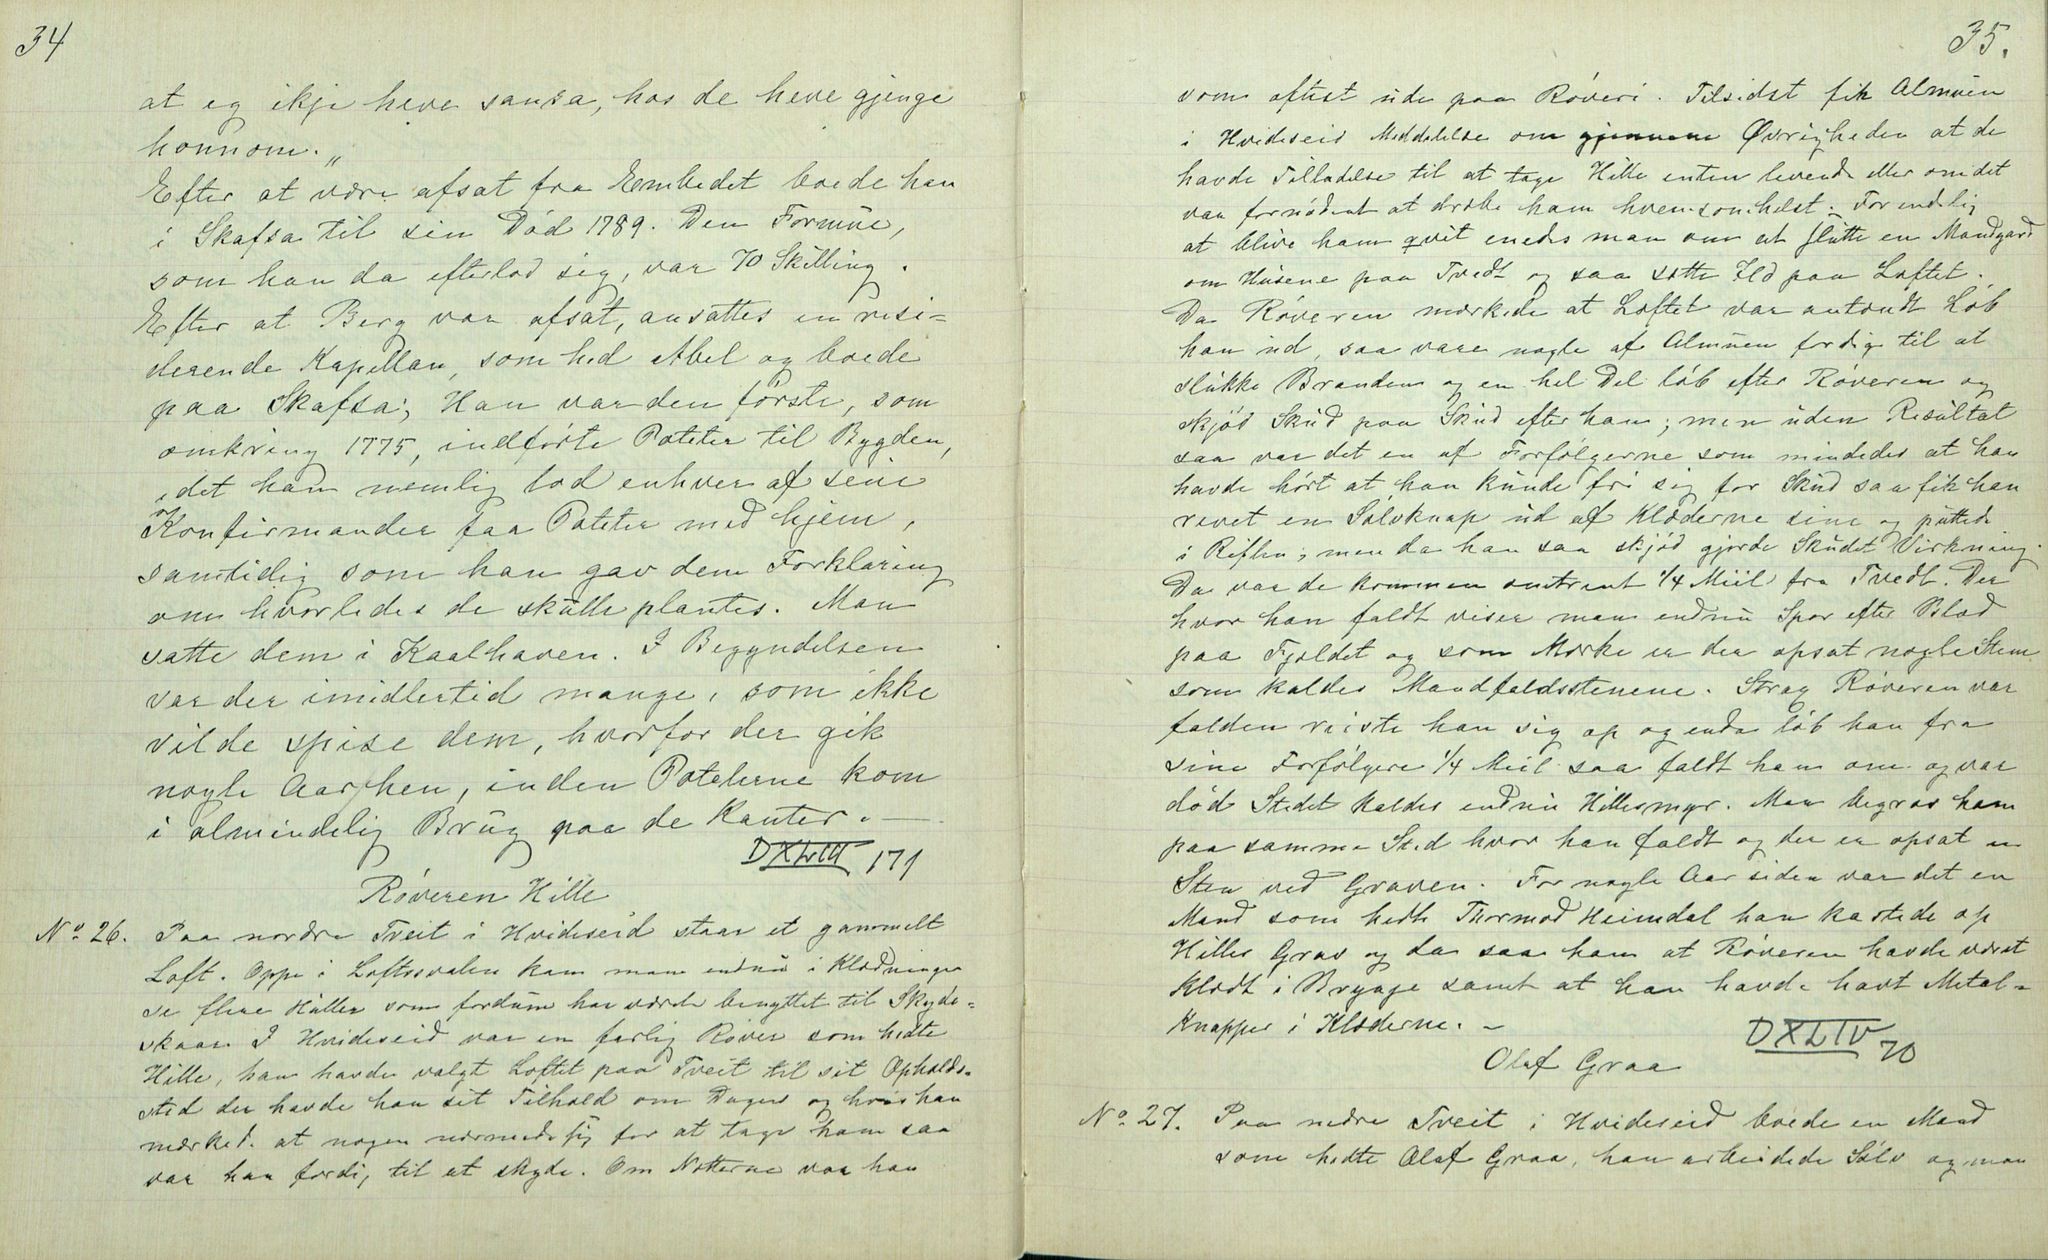 34
at eg ikje heve sansa, hos de heve gjenge
honnom."
Efter at være afsat fra Embedet boede han
i Skafsa til sin Død 1789. Den Formue,
som han da efterlod sig, var 70 Skilling.
Efter at Berg var afsat, ansattes en resi-
derende Kapellan, som hed Abel og boede
paa Skafsa; Han var den første, som
omkring 1775, indførte Poteter til Bygden,
idet han nemlig lod enhver af sine
Konfirmander faa Poteter med hjem,
samtidig som han gav dem Forklaring
om hvorledes de skulle plantes. Man
satte dem i Kaalhaven. I Begyndelsen
var der imidlertid mange, som ikke
vilde spise dem, hvorfor der gik
nogle Aar hen, inden Poteterne kom
i almindelig Brug paa de Kanter. —
DXLIII 171
Røveren Hille
No 26. Paa nordre Tveit i Hvideseid staar et gammelt
Loft. Oppe i Loftssvalen kan man endnu i Klædningen
se flere Huller som fordum har været benyttet til Skyde-
skaar. I Hvideseid var en farlig Røver som hedte
Hille, han havde valgt Loftet paa Tveit til sit Opholds-
sted der havde han sit Tilhold om Dagen og hvis han
mærkede at nogen nærmede sig for at tage ham saa
var han færdig til at skyde. Om Nætterne var han
35.
som oftest ude paa Røveri. Tilsidst fik Almuen
i Hvideseid Meddelelse om gjennem Øvrigheden at de
havde Tilladelse til at tage Hille enten levende eller om det
var fornødent at dræbe ham hvemsomhelst. For endelig
at blive ham qvit enedes man om at slutte en Mandgard
om Husene paa Tvedt og saa sætte Ild paa Loftet.
Da Røveren mærkede at Loftet var antændt Løb
han ud, saa vare nogle af Almuen færdige til at
slukke Branden og en hel Del løb efter Røveren og
skjød Skud paa Skud efter ham; men uden Resultat
saa var det en af Forfølgerne som mindedes at han
havde hørt at han kunde fri sig for Skud saa fik han
revet en Sølvknap ud af Klæderne sine og puttede
i Riflen; men da han saa skjød gjorde Skudet Virkning.
Da var de kommen omtrent 1/4 Miil fra Tvedt. Der
hvor han faldt viser man endnu Spor efter Blod
paa Fjeldet og som Mærke er der opsat nogle Stene
som kaldes Mandfaldsstenene. Strax Røveren var
falden reiste han sig op og enda løb han fra
sine Forfølgere 1/4 Miil saa faldt han om og var
død Stedet kaldes endnu Hillesmyr. Man begrov ham
paa samme Sted hvor han faldt og der er opsat en
Sten ved Graven. For nogle Aar siden var det en
Mand som hedte Thormod Heimdal han kastede op
Hilles Grav og da saa han at Røveren havde været
klædt i Brynje samt at han havde havt Metal-
Knapper i Klæderne. —
DXLIV 70
Olaf Graa
No 27. Paa nedre Tveit i Hvideseid boede en Mand
som hedte Olaf Graa, han arbeidede Sølv og man